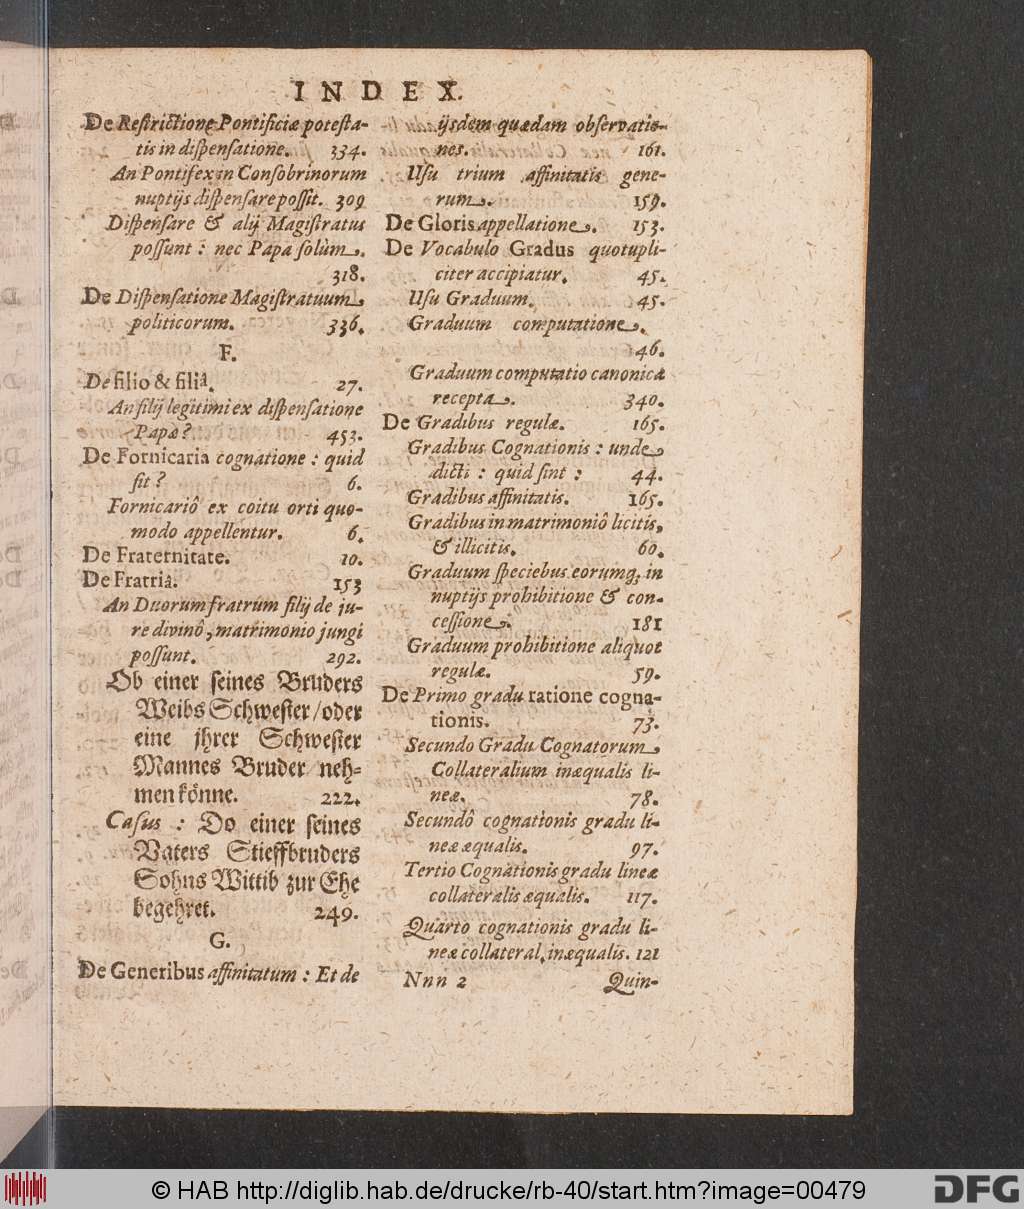 INDEX.
De Restrictione Pontificiæ potesta-
tis in dispensatione. 334.
An Pontifex in Consobrinorum
nuptijs dispensare possit. 309
Dispensare & alij Magistratus
possunt : nec Papa solùm.
318.
De Dispensatione Magistratuum
politicorum. 336.
F.
De filio & filiâ. 27.
An filij legitimi ex dispensatione
Papæ? 453.
De Fornicaria cognatione : quid
sit? 6.
Fornicariô ex coitu orti quo-
modo appellentur. 6.
De Fraternitate. 10.
De Fratriâ. 153
An Duorum fratrum filij de ju-
re divinô, matrimonio jungi
possunt. 292.
Ob einer seines Bruders
Weibs Schwester/oder
eine jhrer Schwester
Mannes Bruder neh-
men könne. 222.
Casus : Do einer seines
Vaters Stieffbruders
Sohns Wittib zur Ehe
begehret. 249.
G.
De Generibus affinitatum : Et de
ijsdem quædam observatio-
nes. 161.
Usu trium affinitatis gene-
rum. 159.
De Gloris appellatione. 153.
De Vocabulo Gradus quotupli-
citer accipiatur. 45.
Usu Graduum. 45.
Graduum computatione.
46.
Graduum computatio canonica
recepta. 340.
De Gradibus regulæ. 165.
Gradibus Cognationis : unde
dicti : quid sint : 44.
Gradibus affinitatis. 165.
Gradibus in matrimoniô licitis,
& illicitis. 60.
Graduum speciebus eorumq; in
nuptijs prohibitione & con-
cessione. 181
Graduum prohibitione aliquot
regulæ. 59.
De Primo gradu ratione cogna-
tionis. 73.
Secundo Gradu Cognatorum
Collateralium inæqualis li-
neæ. 78.
Secundô cognationis gradu li-
neæ æqualis. 97.
Tertio Cognationis gradu lineæ
collateralis æqualis. 117.
Quarto cognationis gradu li-
neæ collateral. inæqualis. 121
Nnn 2 Quin-
© HAB http://diglib.hab.de/drucke/rb-40/start.htm?image=00479
DFG